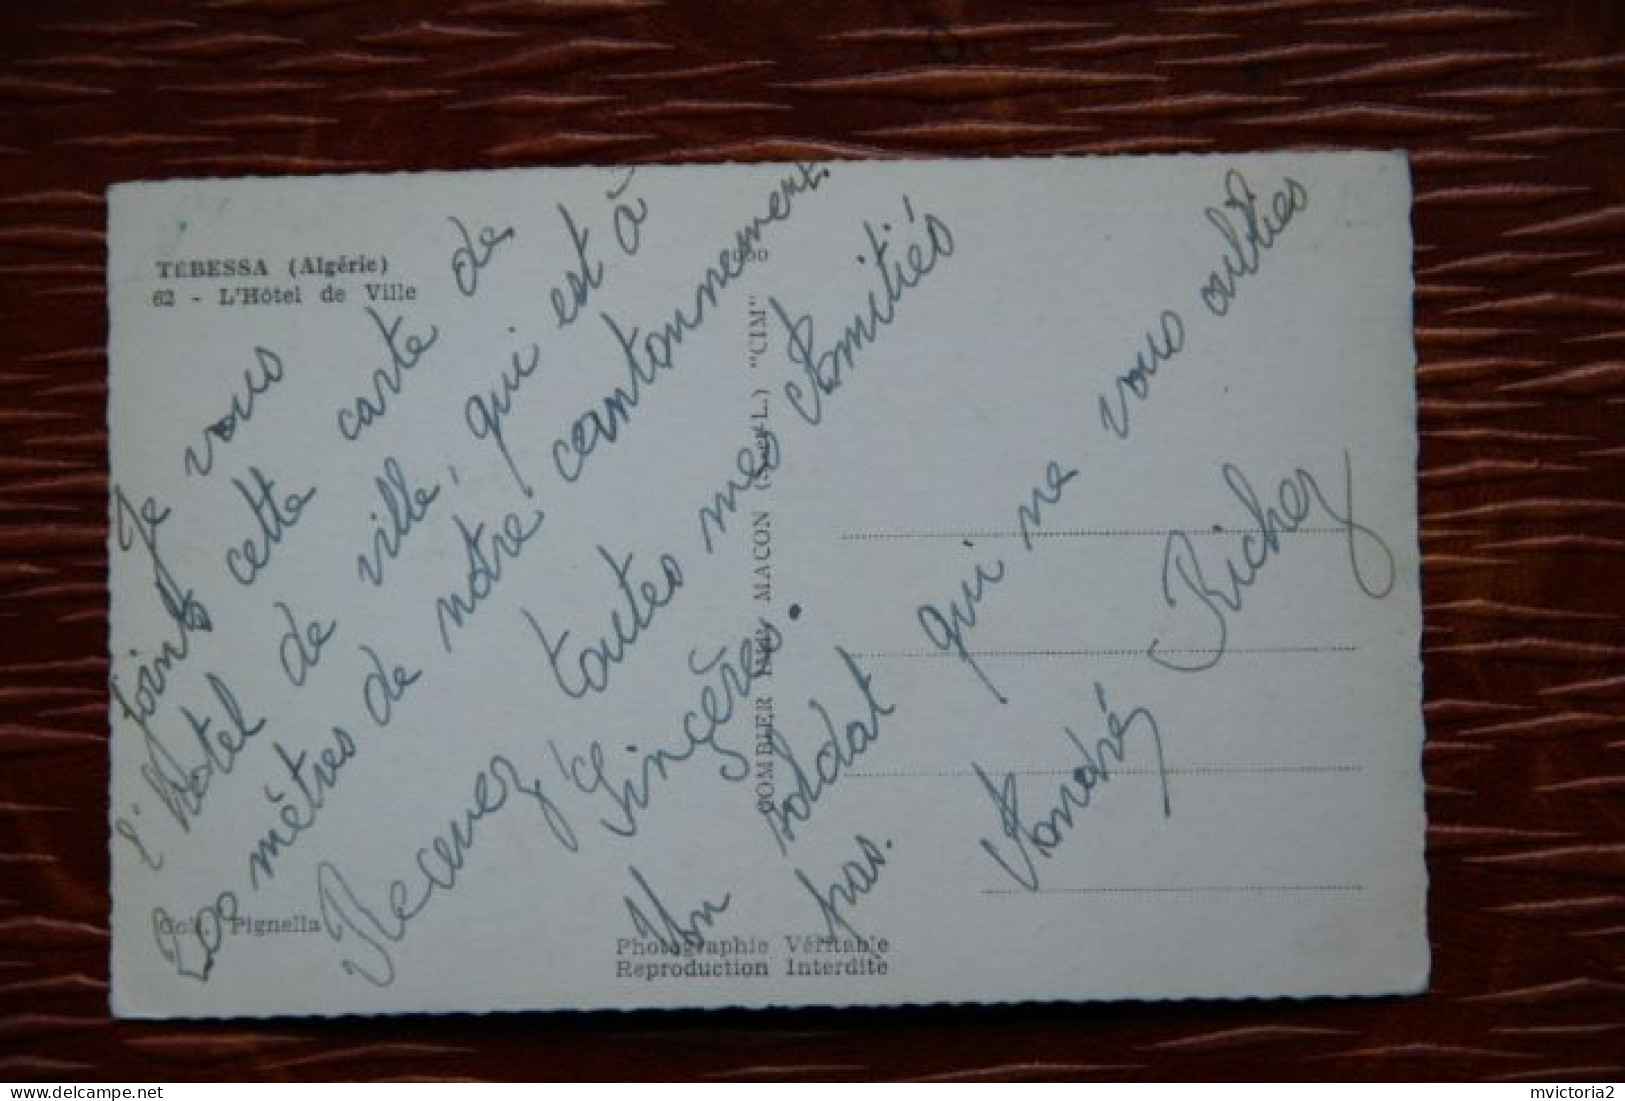 TÉBESSA (Algérie)
62 - L'Hôtel de Ville
Je vous
joints cette carte de
l'hôtel de ville, qui est à
200 mètres de notre cantonnement.
Recevez ici toutes mes Amitiés
Sincères.
Un soldat qui ne vous oublies
pas.
André Richez
COMBIER IMP. MACON (S.-et-L.) "CIM"
Coll. Pignella
Photographie Véritable
Reproduction Interdite
mvictoria2